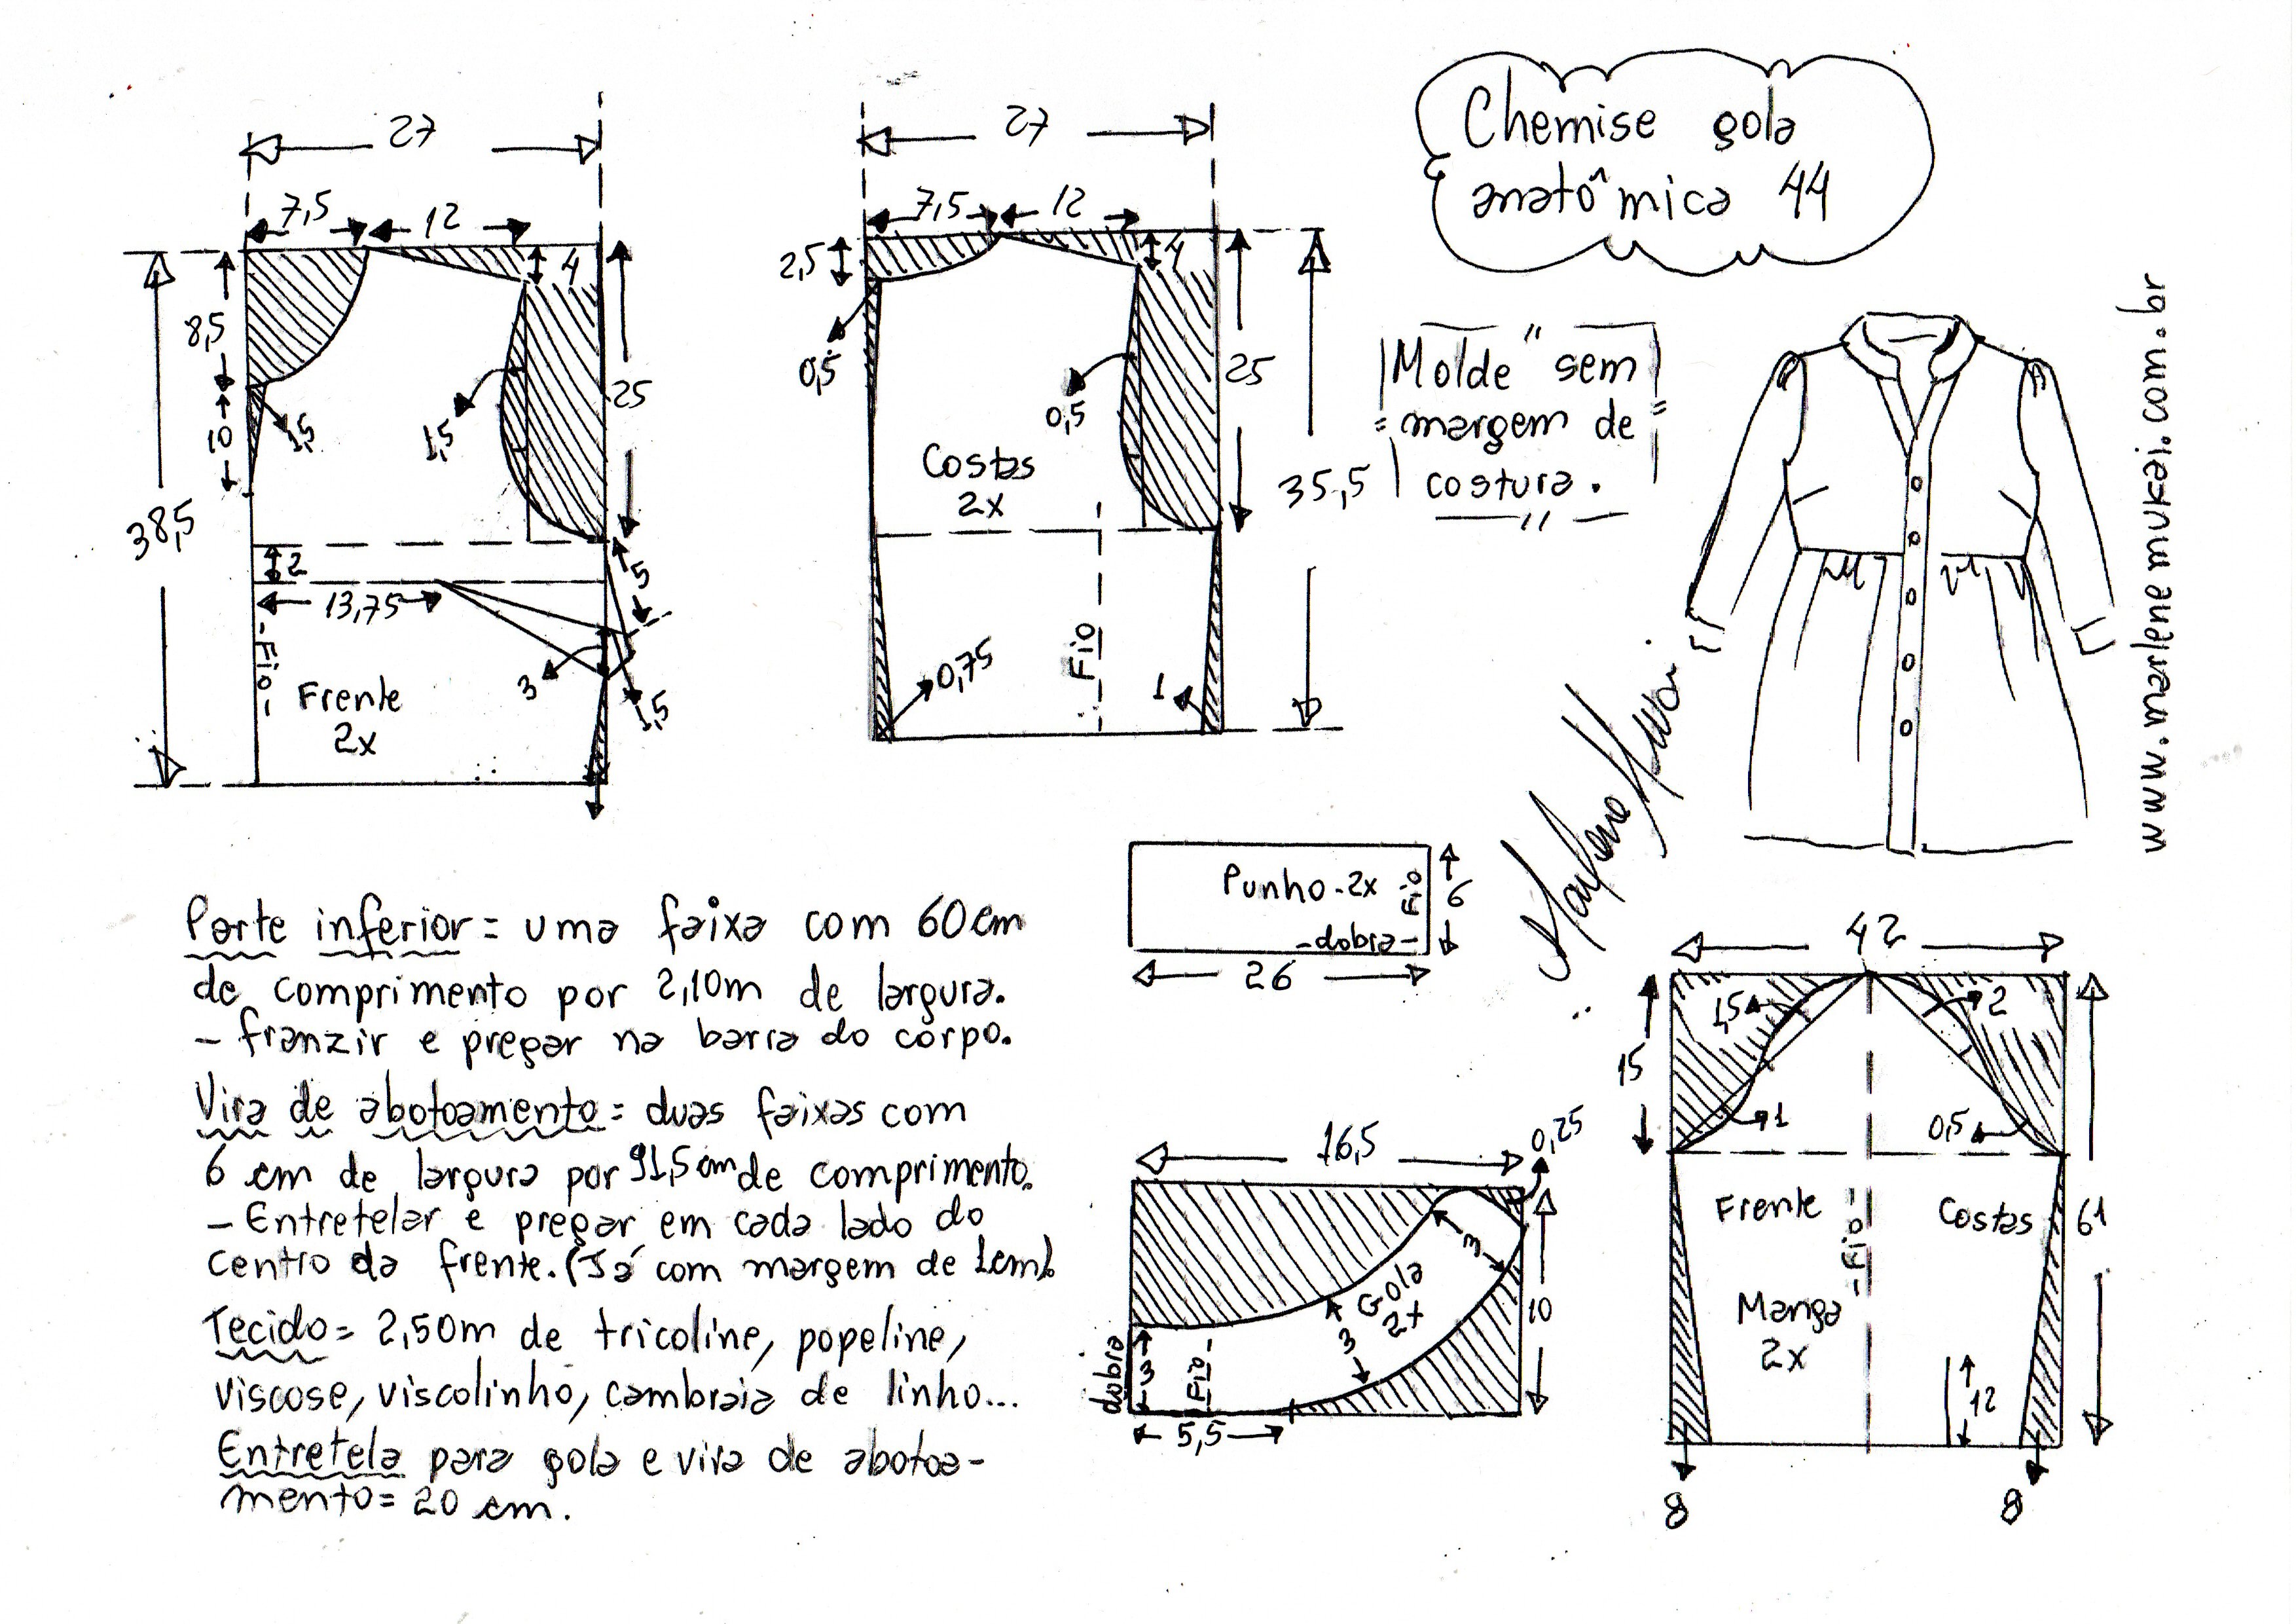 Chemise gola
anatômica 44
"Molde" sem
margem de
costura.
www.marlenemukai.com.br
Marlene Mukai
27
7,5
12
4
8,5
10
1,5
1,5
25
38,5
2
13,75
5
3
1,5
-Fio-
Frente
2x
27
7,5
12
2,5
4
0,5
0,5
25
35,5
Costas
2x
Fio
0,75
1
Punho-2x
Fio
6
-dobra-
26
Parte inferior= uma faixa com 60cm
de comprimento por 2,10m de largura.
- franzir e pregar na barra do corpo.
Vira de abotoamento= duas faixas com
6 cm de largura por 91,5cm de comprimento.
- Entretelar e pregar em cada lado do
centro da frente. (Já com margem de 1cm).
Tecido= 2,50m de tricoline, popeline,
viscose, viscolinho, cambraia de linho...
Entretela para gola e vira de abotoa-
mento= 20 cm.
16,5
0,25
3
Gola
2x
3
10
dobra
3
Fio
5,5
42
1,5
2
15
1
0,5
Frente
-Fio-
Costas
61
Manga
2x
12
8
8